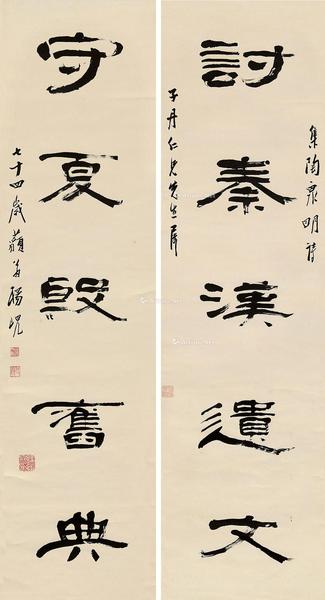 集陶泉明詩
討秦漢遺文
子丹仁兄先生屬
守夏殷舊典
七十四歲蘋翁楊